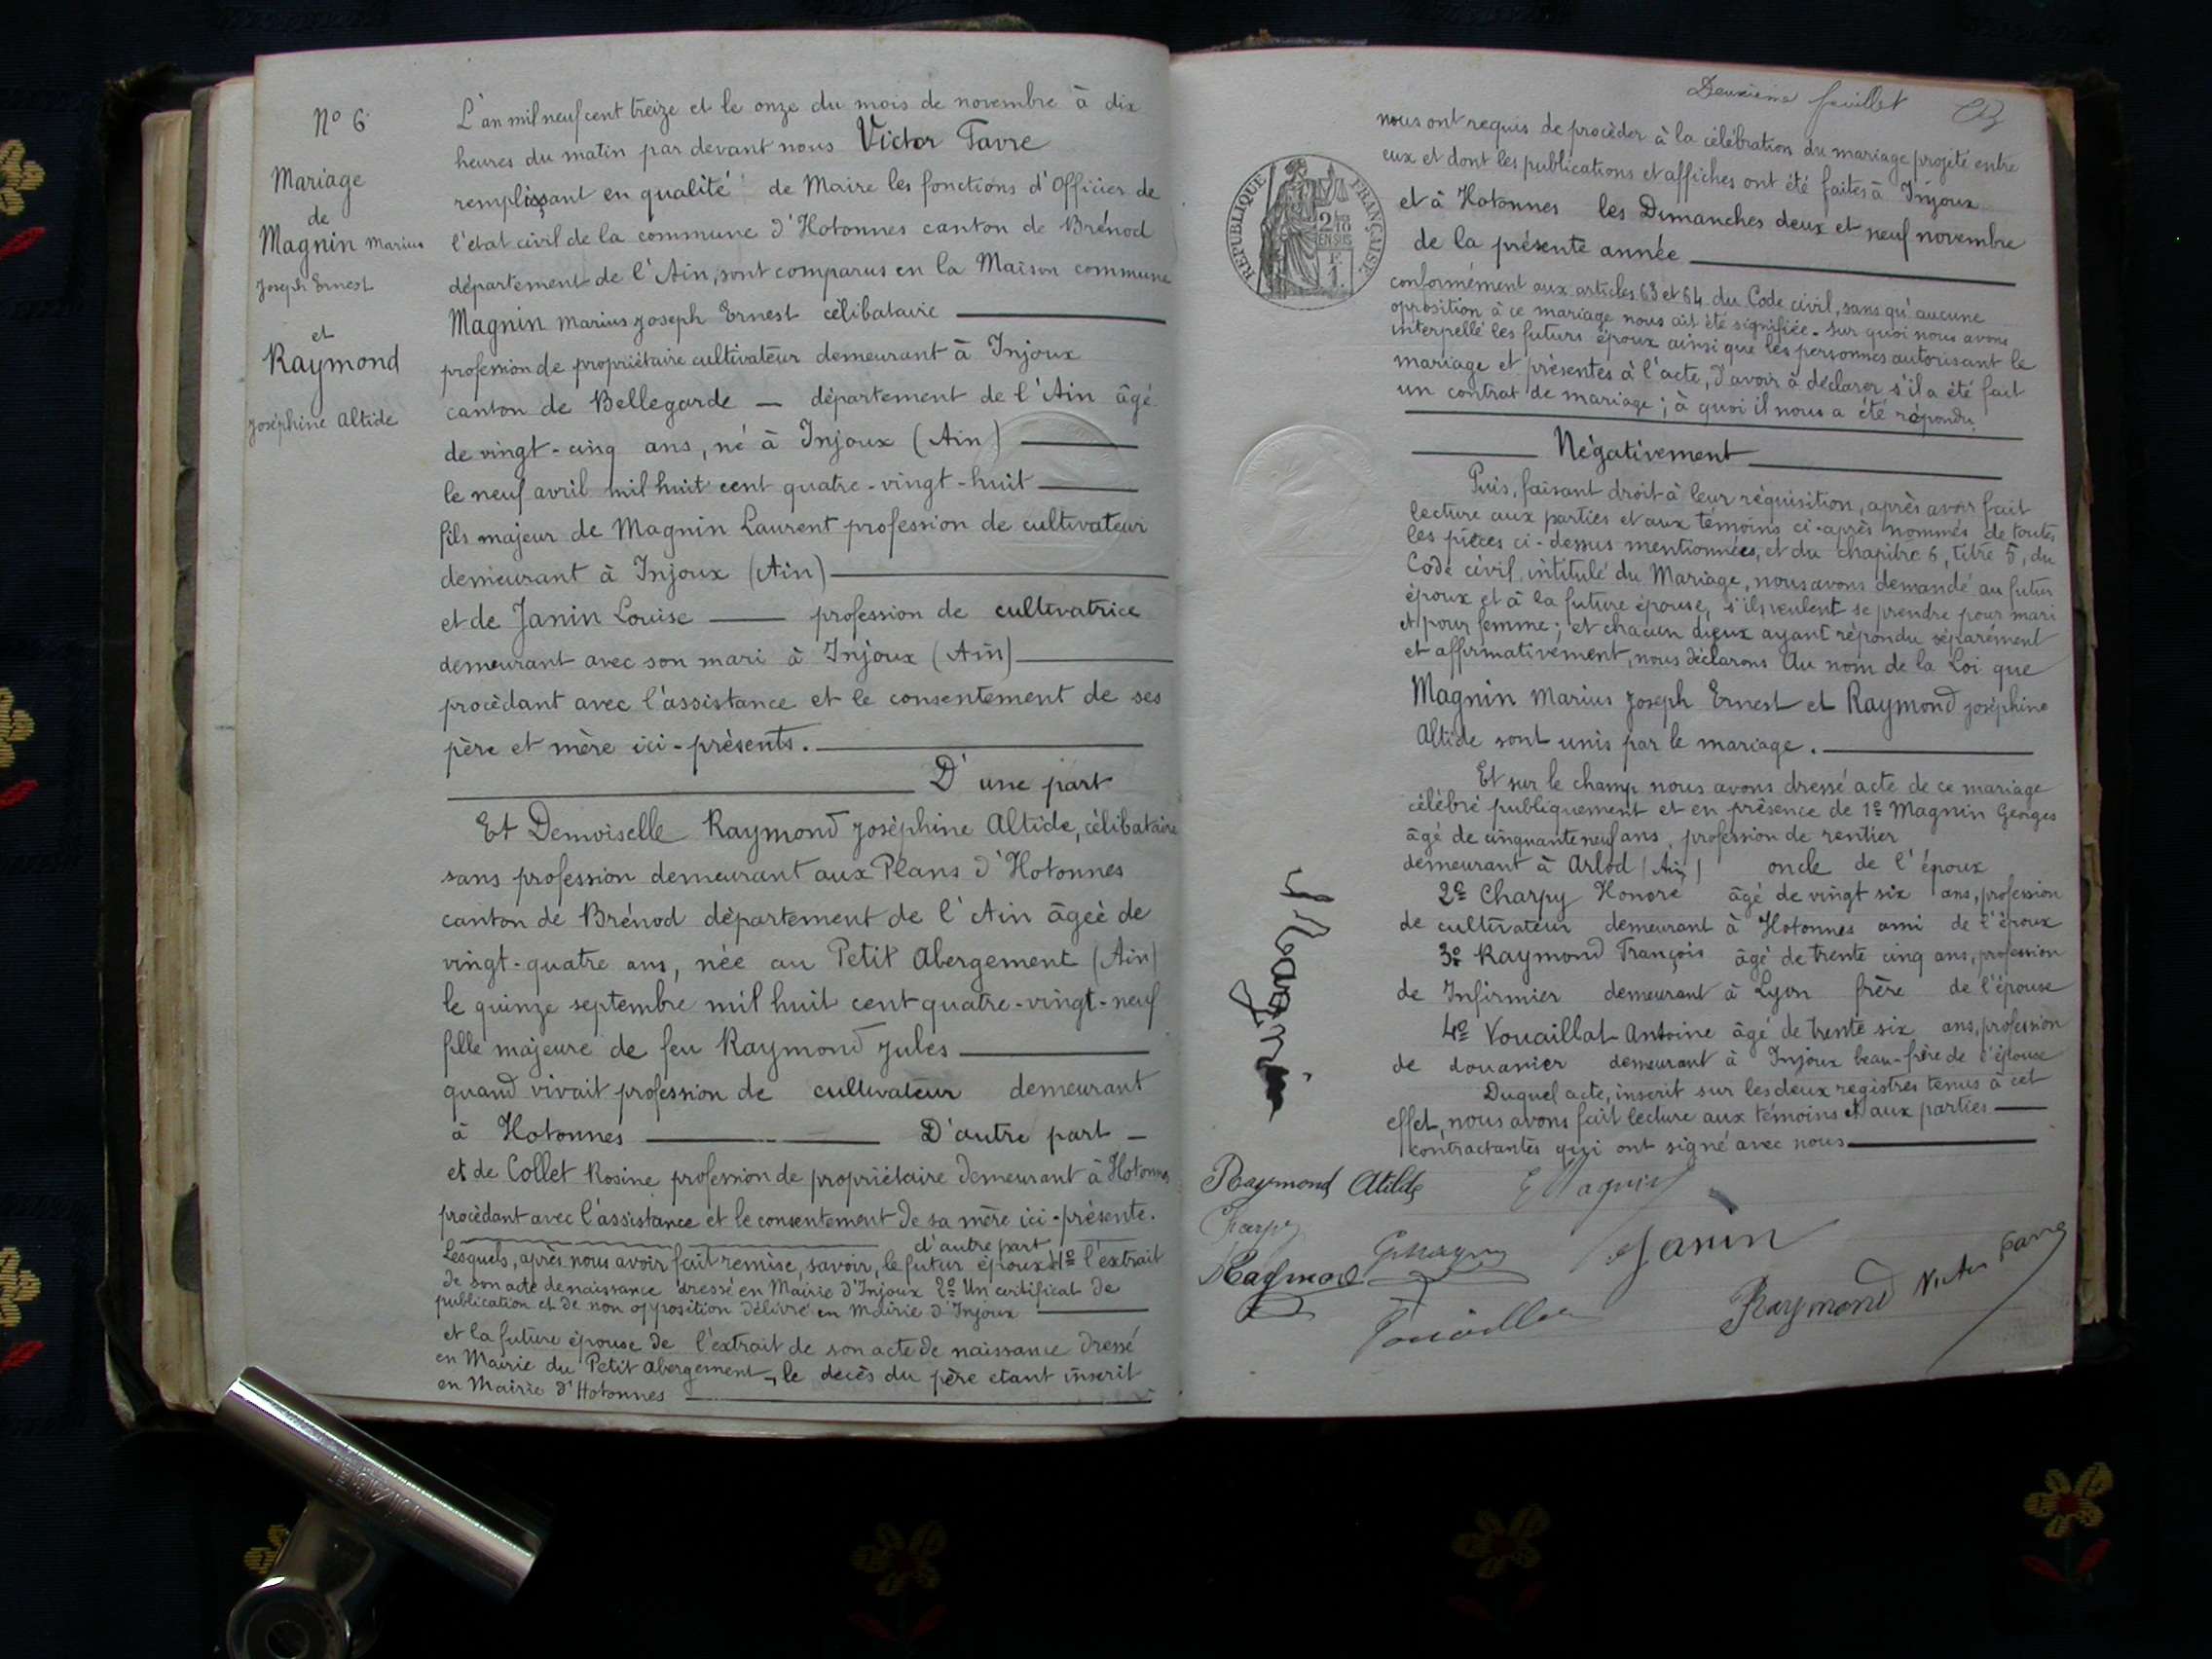 N° 6
Mariage
de
Magnin Marius
Joseph Ernest
et
Raymond
Joséphine Altide
L'an mil neuf cent treize et le onze du mois de novembre à dix
heures du matin par devant nous Victor Favre
remplissant en qualité de Maire les fonctions d'Officier de
l'état civil de la commune d'Hotonnes canton de Brénod
département de l'Ain, sont comparus en la Maison commune
Magnin Marius Joseph Ernest célibataire
profession de propriétaire cultivateur demeurant à Injoux
canton de Bellegarde — département de l'Ain âgé
de vingt-cinq ans, né à Injoux (Ain)
le neuf avril mil huit cent quatre-vingt-huit
fils majeur de Magnin Laurent profession de cultivateur
demeurant à Injoux (Ain)
et de Janin Louise — profession de cultivatrice
demeurant avec son mari à Injoux (Ain)
procèdant avec l'assistance et le consentement de ses
père et mère ici-présents.
D'une part
Et Demoiselle Raymond Joséphine Altide, célibataire
sans profession demeurant aux Plans d'Hotonnes
canton de Brénod département de l'Ain âgée de
vingt-quatre ans, née au Petit Abergement (Ain)
le quinze septembre mil huit cent quatre-vingt-neuf
fille majeure de feu Raymond Jules
quand vivait profession de cultivateur demeurant
à Hotonnes — D'autre part —
et de Collet Rosine profession de propriétaire demeurant à Hotonnes
procèdant avec l'assistance et le consentement de sa mère ici-présente.
d'autre part
Lesquels, après nous avoir fait remise, savoir, le futur époux 1° l'extrait
de son acte de naissance dressé en Mairie d'Injoux 2° Un certificat de
publication et de non opposition délivré en Mairie d'Injoux
et la future épouse de l'extrait de son acte de naissance dressé
en Mairie du Petit Abergement, le décès du père etant inscrit
en Mairie d'Hotonnes
Deuxième feuillet
nous ont requis de procéder à la célébration du mariage projeté entre
eux et dont les publications et affiches ont été faites à Injoux
et à Hotonnes les Dimanches deux et neuf novembre
de la présente année
RÉPUBLIQUE FRANÇAISE
2/10
EN SUS
F.
1.
conformément aux articles 63 et 64 du Code civil, sans qu'aucune
opposition à ce mariage nous ait été signifiée. Sur quoi nous avons
interpellé les futurs époux ainsi que les personnes autorisant le
mariage et présentes à l'acte, d'avoir à déclarer s'il a été fait
un contrat de mariage ; à quoi il nous a été répondu
Négativement
Puis, faisant droit à leur réquisition, après avoir fait
lecture aux parties et aux témoins ci-après nommés de toutes
les pièces ci-dessus mentionnées, et du chapitre 6, titre 5, du
Code civil, intitulé du Mariage, nous avons demandé au futur
époux et à la future épouse, s'ils veulent se prendre pour mari
et pour femme ; et chacun d'eux ayant répondu séparément
et affirmativement, nous déclarons Au nom de la Loi que
Magnin Marius Joseph Ernest et Raymond Joséphine
Altide sont unis par le mariage.
Et sur le champ nous avons dressé acte de ce mariage
célébré publiquement et en présence de 1° Magnin Georges
âgé de cinquante neuf ans, profession de rentier
demeurant à Arlod (Ain) oncle de l'époux
2° Charpy Honoré âgé de vingt six ans, profession
de cultivateur demeurant à Hotonnes ami de l'époux
3° Raymond François âgé de trente cinq ans, profession
de Infirmier demeurant à Lyon frère de l'épouse
4° Vouaillat Antoine âgé de trente six ans, profession
de douanier demeurant à Injoux beau-frère de l'épouse
Duquel acte, inscrit sur les deux registres tenus à cet
effet, nous avons fait lecture aux témoins et aux parties
contractantes qui ont signé avec nous
Raymond Atilde E Magnin
Charpy G Magnin Janin
Raymond Raymond Victor Favre